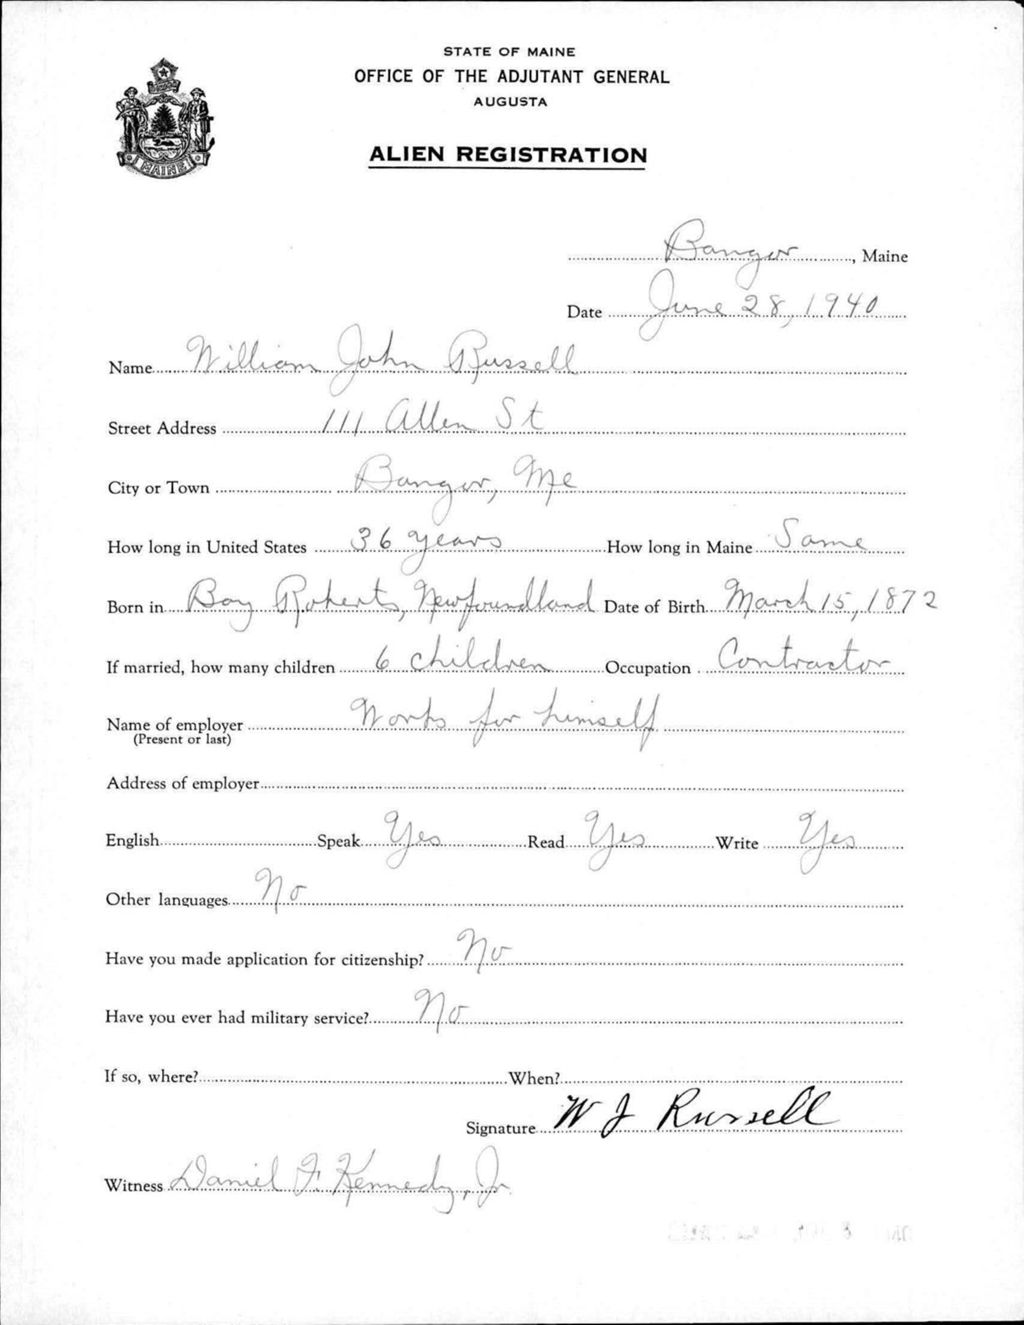 STATE OF MAINE
OFFICE OF THE ADJUTANT GENERAL
AUGUSTA
ALIEN REGISTRATION
MAINE
Bangor, Maine
Date June 28, 1940
Name William John Russell
Street Address 111 Allen St
City or Town Bangor, Me
How long in United States 36 years How long in Maine Same
Born in Bay Roberts, Newfoundland Date of Birth March 15, 1872
If married, how many children 6 children Occupation Contractor
Name of employer Works for himself
(Present or last)
Address of employer
English Speak Yes Read Yes Write Yes
Other languages No
Have you made application for citizenship? No
Have you ever had military service? No
If so, where? When?
Signature W J Russell
Witness Daniel F. Kennedy, Jr.